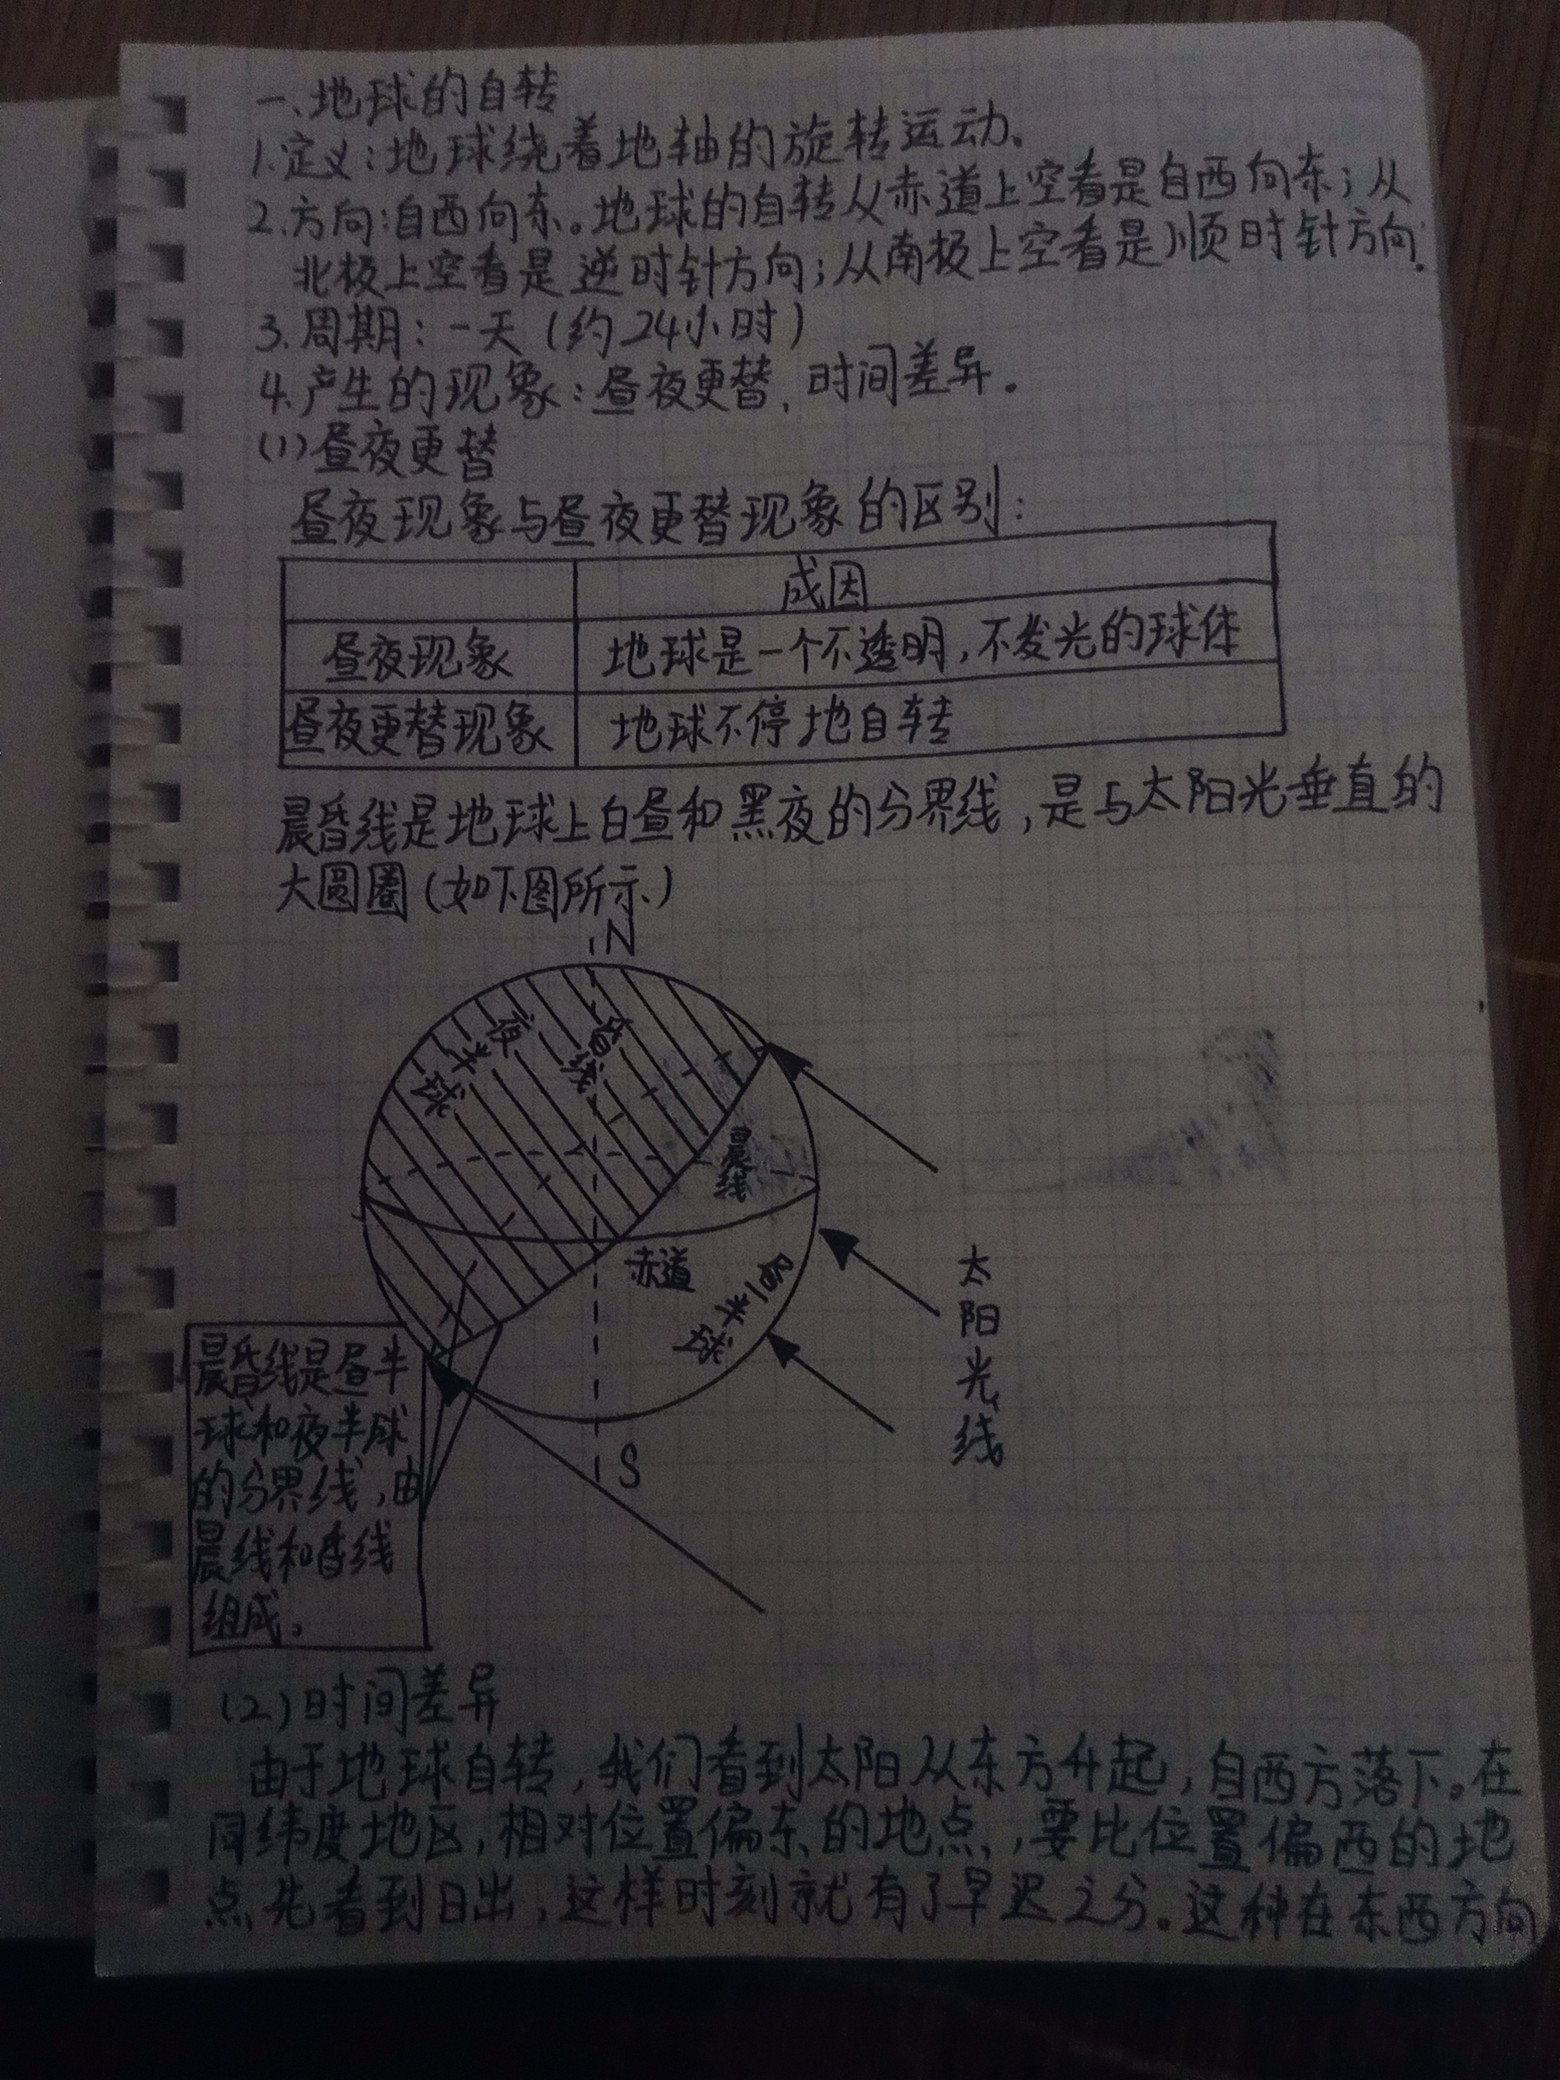 一、地球的自转
1.定义:地球绕着地轴的旋转运动。
2.方向:自西向东。地球的自转从赤道上空看是自西向东;从
北极上空看是逆时针方向;从南极上空看是顺时针方向.
3.周期:一天(约24小时)
4.产生的现象:昼夜更替、时间差异。
(1)昼夜更替
昼夜现象与昼夜更替现象的区别:
成因
昼夜现象 地球是一个不透明,不发光的球体
昼夜更替现象 地球不停地自转
晨昏线是地球上白昼和黑夜的分界线,是与太阳光垂直的
大圆圈(如下图所示)
N
夜半球
昏线
晨线
赤道
昼半球
太阳光线
S
晨昏线是昼半
球和夜半球
的分界线,由
晨线和昏线
组成。
(2)时间差异
由于地球自转,我们看到太阳从东方升起,自西方落下。在
同纬度地区,相对位置偏东的地点,要比位置偏西的地
点先看到日出,这样时刻就有了早迟之分。这种在东西方向